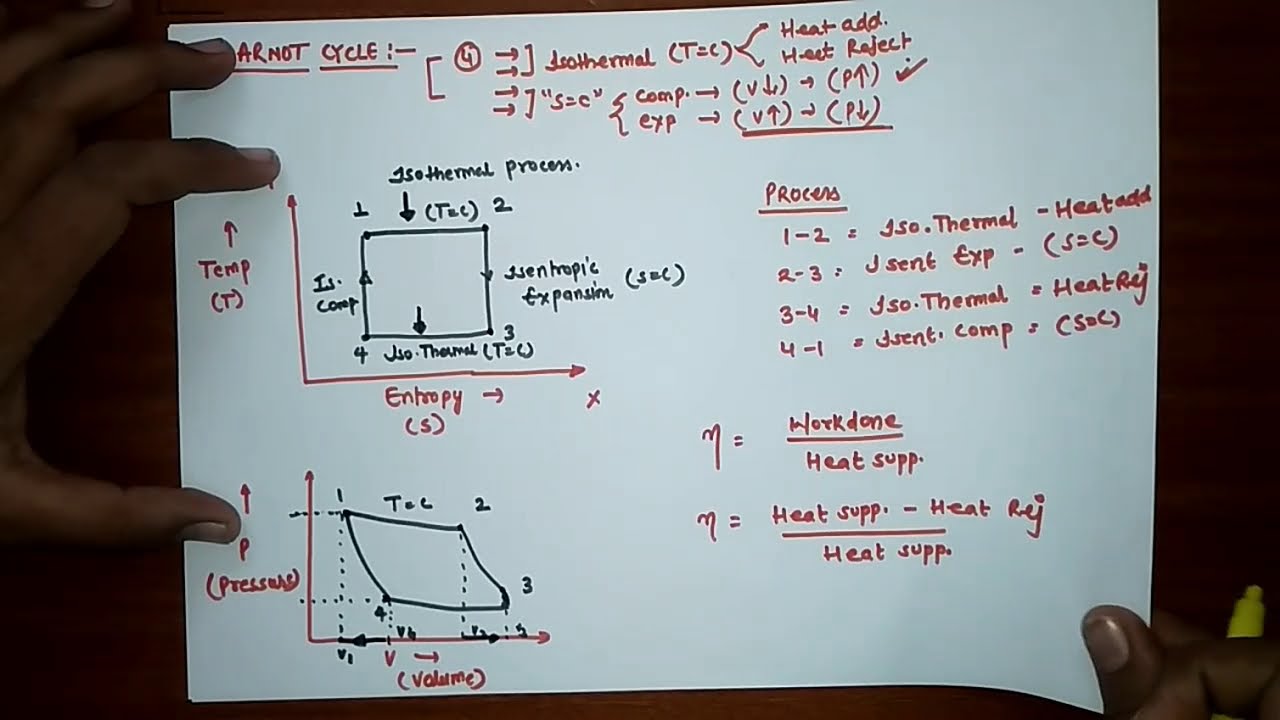 ARNOT CYCLE :-
[ ④ → → ] Isothermal (T=C) < Heat add.
Heat Reject
→ → ] "S=C" { comp. → (V↓) → (P↑) ✓
exp → (V↑) → (P↓)
Isothermal process.
1 ↓ (T=C) 2
↑
Temp
(T)
Is.
comp
Isentropic (S=C)
Expansim
3
4 Iso.Thermal (T=C)
Entropy →
(S)
X
PROCESS
1-2 = Iso.Thermal - Heat add
2-3 = Isent Exp - (S=C)
3-4 = Iso.Thermal = Heat Rej
4-1 = Isent. Comp = (S=C)
η = Workdone
Heat supp.
η = Heat supp. - Heat Rej
Heat supp.
1 T=C 2
↑
P
(Pressure)
3
4
V1 V4
V →
(Volume)